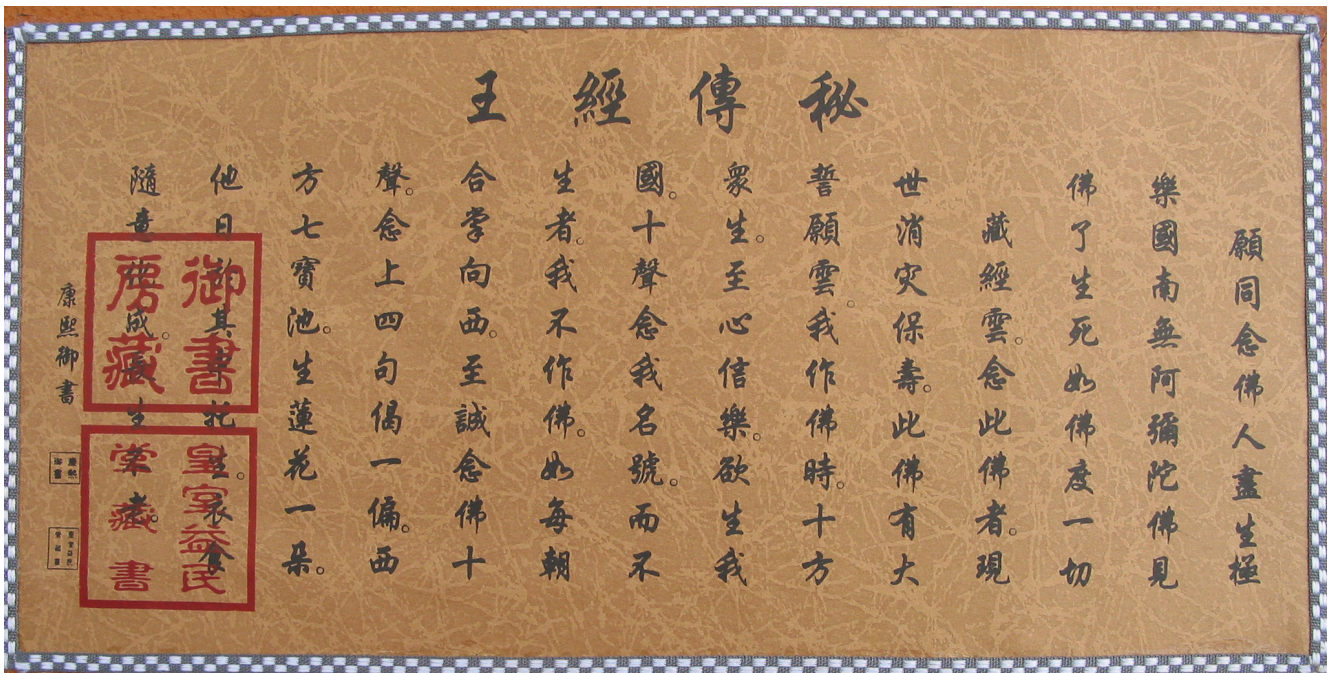 秘傳經王
願同念佛人盡生極
樂國南無阿彌陀佛見
佛了生死如佛度一切
藏經雲。念此佛者。現
世消灾保壽。此佛有大
誓願雲。我作佛時。十方
衆生。至心信樂。欲生我
國。十聲念我名號。而不
生者。我不作佛。如每朝
合掌向西。至誠念佛十
聲。念上四句偈一偏。西
方七寶池。生蓮花一朵。
他日其托生。衣食
隨意成。長生不老。
康熙御書
御書
房藏
皇室益民
堂藏書
康熙
御書